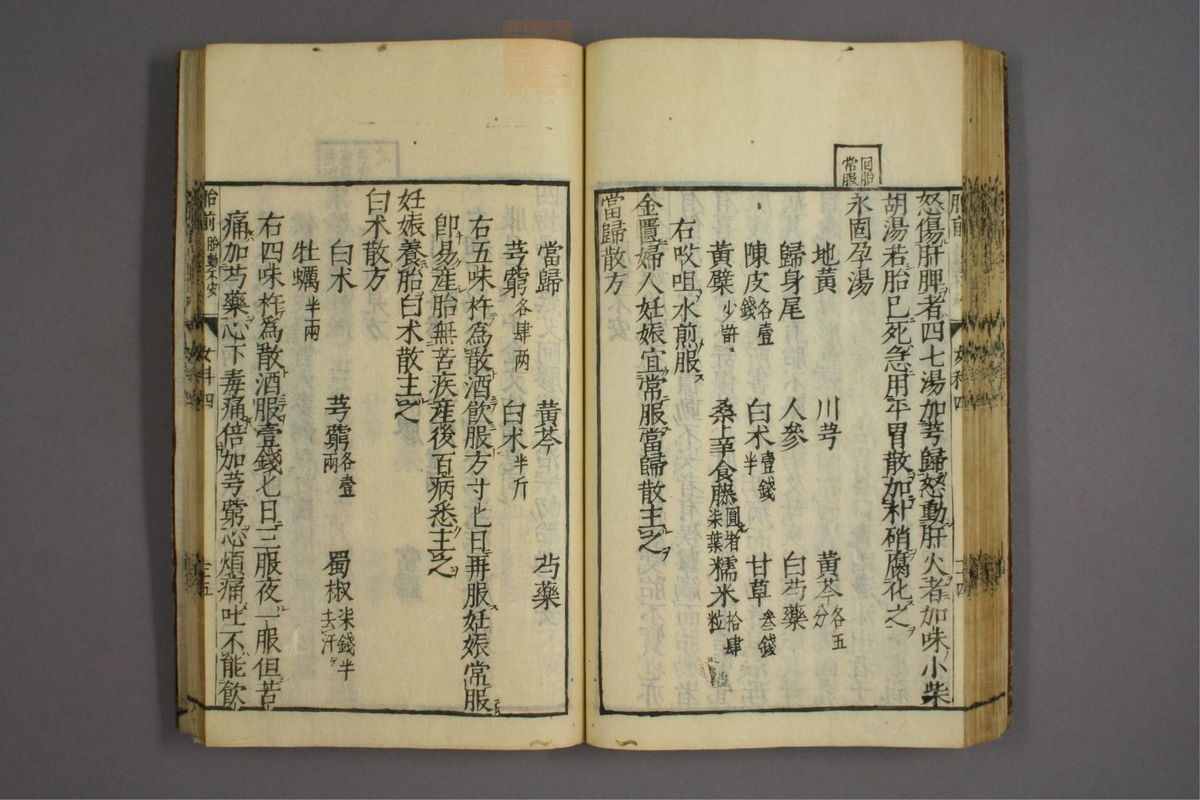 固胎
常服
怒傷肝脾者四七湯加芎歸怒動肝火者加味小柴
胡湯若胎已死急用平胃散加朴硝腐化之
永固孕湯
地黃 川芎 黃芩各五分
歸身尾 人參 白芍藥
陳皮各壹錢 白朮壹錢半 甘草叁錢
黃蘗少許 桑上羊食藤圓者柒葉 糯米拾肆粒
右㕮咀水煎服
金匱婦人妊娠宜常服當歸散主之
當歸散方
當歸 黃芩 芍藥
芎藭各肆兩 白朮半斤
右五味杵為散酒飲服方寸匕日再服妊娠常服
卽易產胎無苦疾產後百病悉主之
妊娠養胎白朮散主之
白朮散方
白朮 芎藭各壹兩 蜀椒柒錢半去汗
牡蠣半兩
右四味杵為散酒服壹錢匕日三服夜一服但苦
痛加芍藥心下毒痛倍加芎藭心煩痛吐不能飲
胎前 胎動不安 女科四 二十五
女科四 二十四